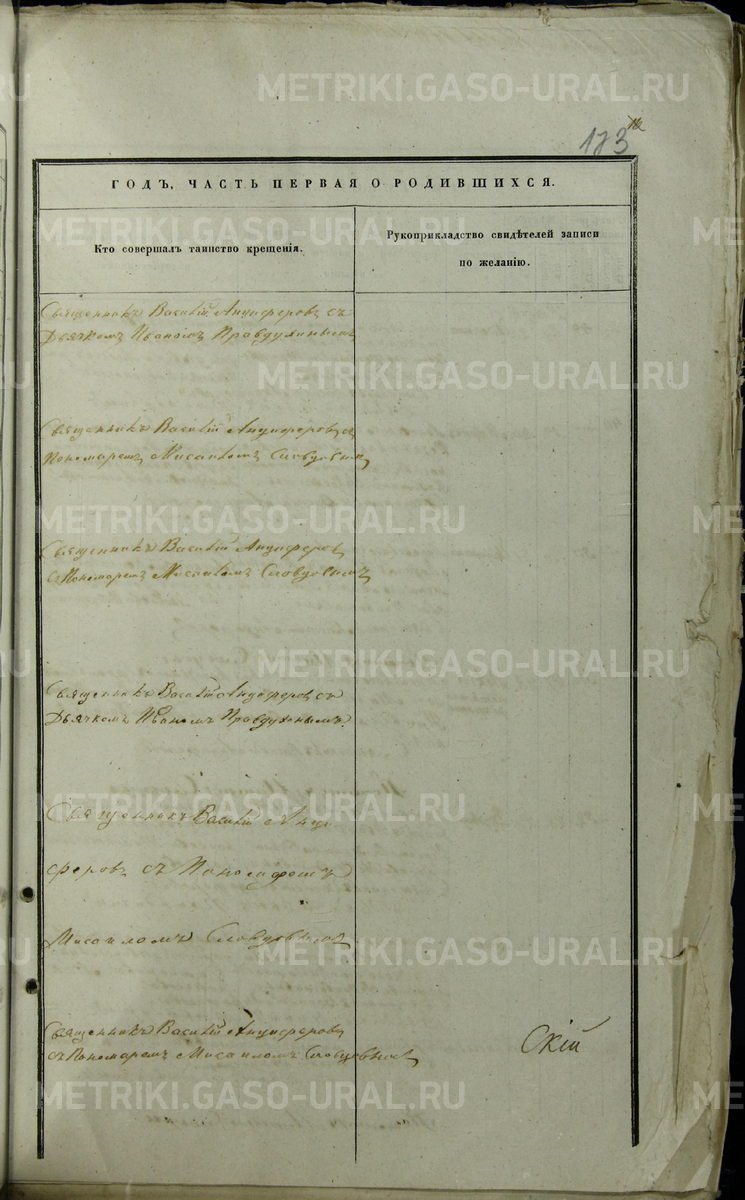 173
ГОДЪ, ЧАСТЬ ПЕРВАЯ О РОДИВШИХСЯ.
Кто совершалъ таинство крещенія.
Рукоприкладство свидѣтелей записи
по желанію.
Священникъ Василій Анциферовъ съ
Дьячкомъ Иваномъ Правдухинымъ
Священникъ Василій Анциферовъ съ
Пономаремъ Мисаиломъ Словцовымъ
Священникъ Василій Анциферовъ
съ Пономаремъ Мисаиломъ Словцовымъ
Священникъ Василій Анциферовъ съ
Дьячкомъ Иваномъ Правдухинымъ
Священникъ Василій Анци
феровъ съ Пономаремъ
Мисаиломъ Словцовымъ
Священникъ Василій Анциферовъ
съ Пономаремъ Мисаиломъ Словцовымъ
Скій
METRIKI.GASO-URAL.RU